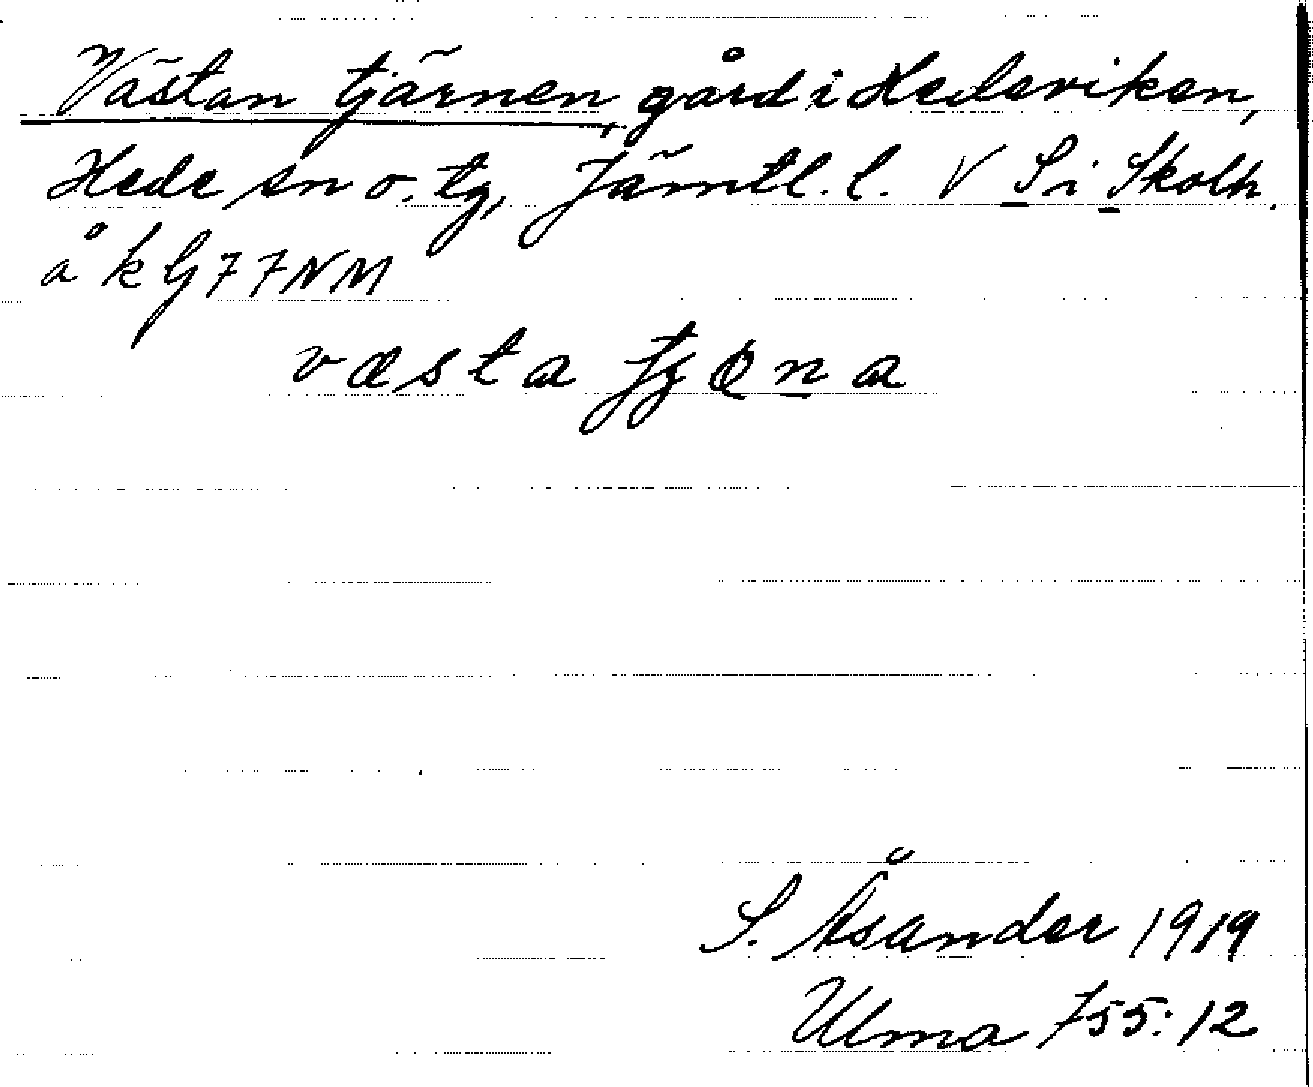 Västan tjärnen, gård i Hedeviken,
Hede sn o. tg, Jämtl. l. V S i Skolh.
å k G77NM
væsta
S. Åsander 1919
Ulma 755:12